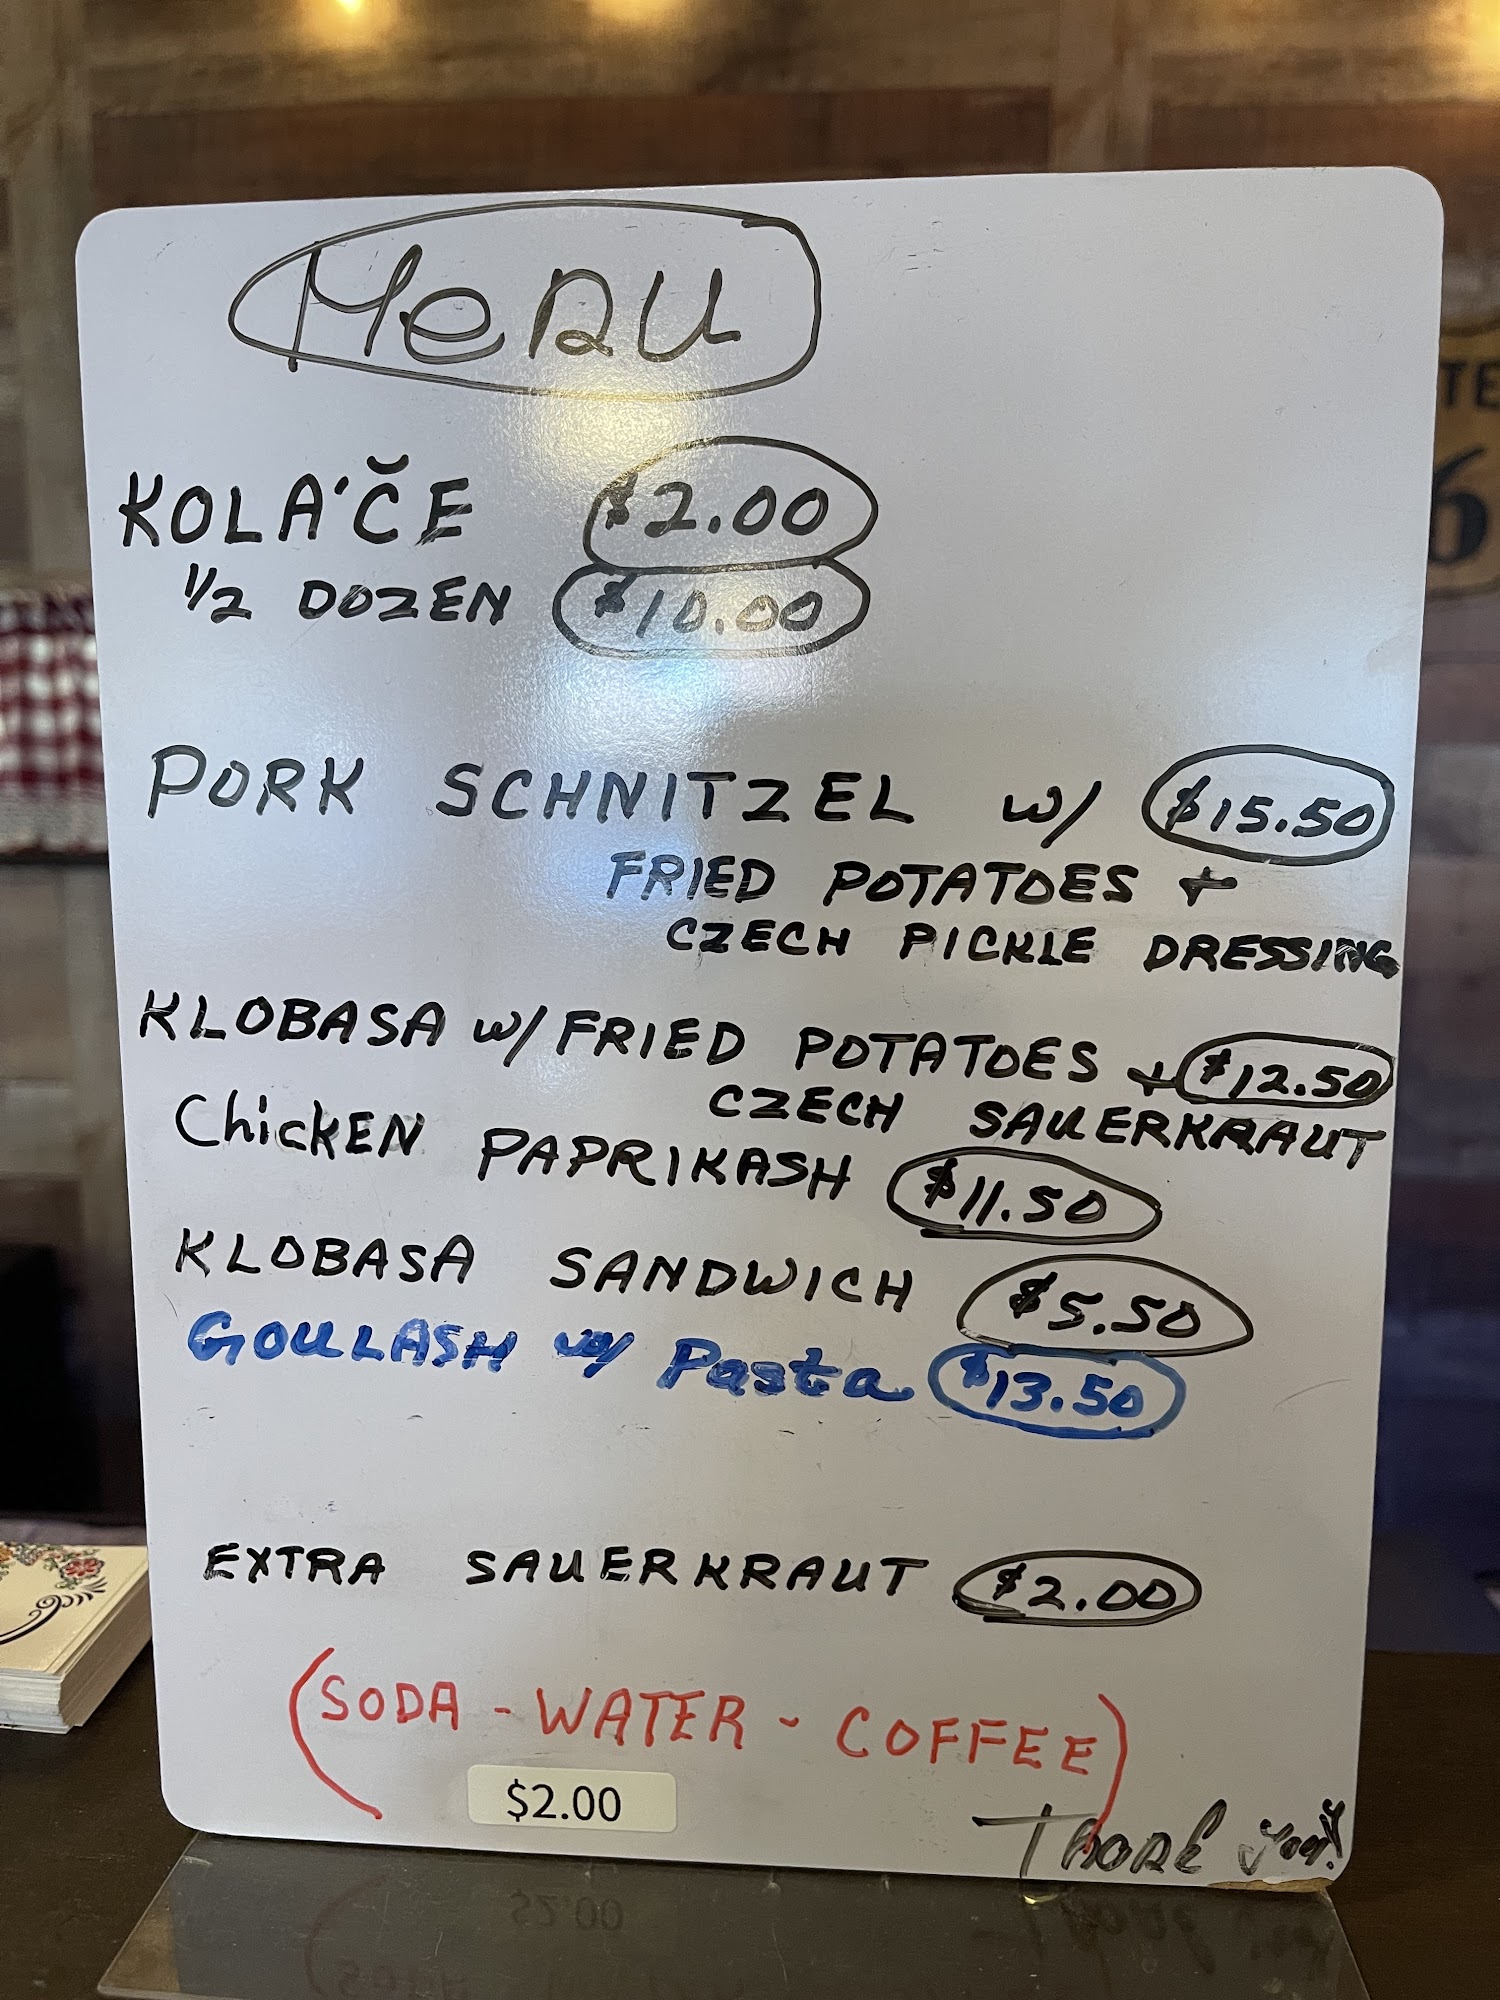 Menu
KOLÁČE $2.00
1/2 DOZEN $10.00
PORK SCHNITZEL w/ $15.50
FRIED POTATOES +
CZECH PICKLE DRESSING
KLOBASA w/ FRIED POTATOES + $12.50
CZECH SAUERKRAUT
ChicKEN PAPRIKASH $11.50
KLOBASA SANDWICH $5.50
GOULASH w/ Pasta $13.50
EXTRA SAUERKRAUT $2.00
(SODA - WATER - COFFEE)
$2.00
Thank you!
TE
6